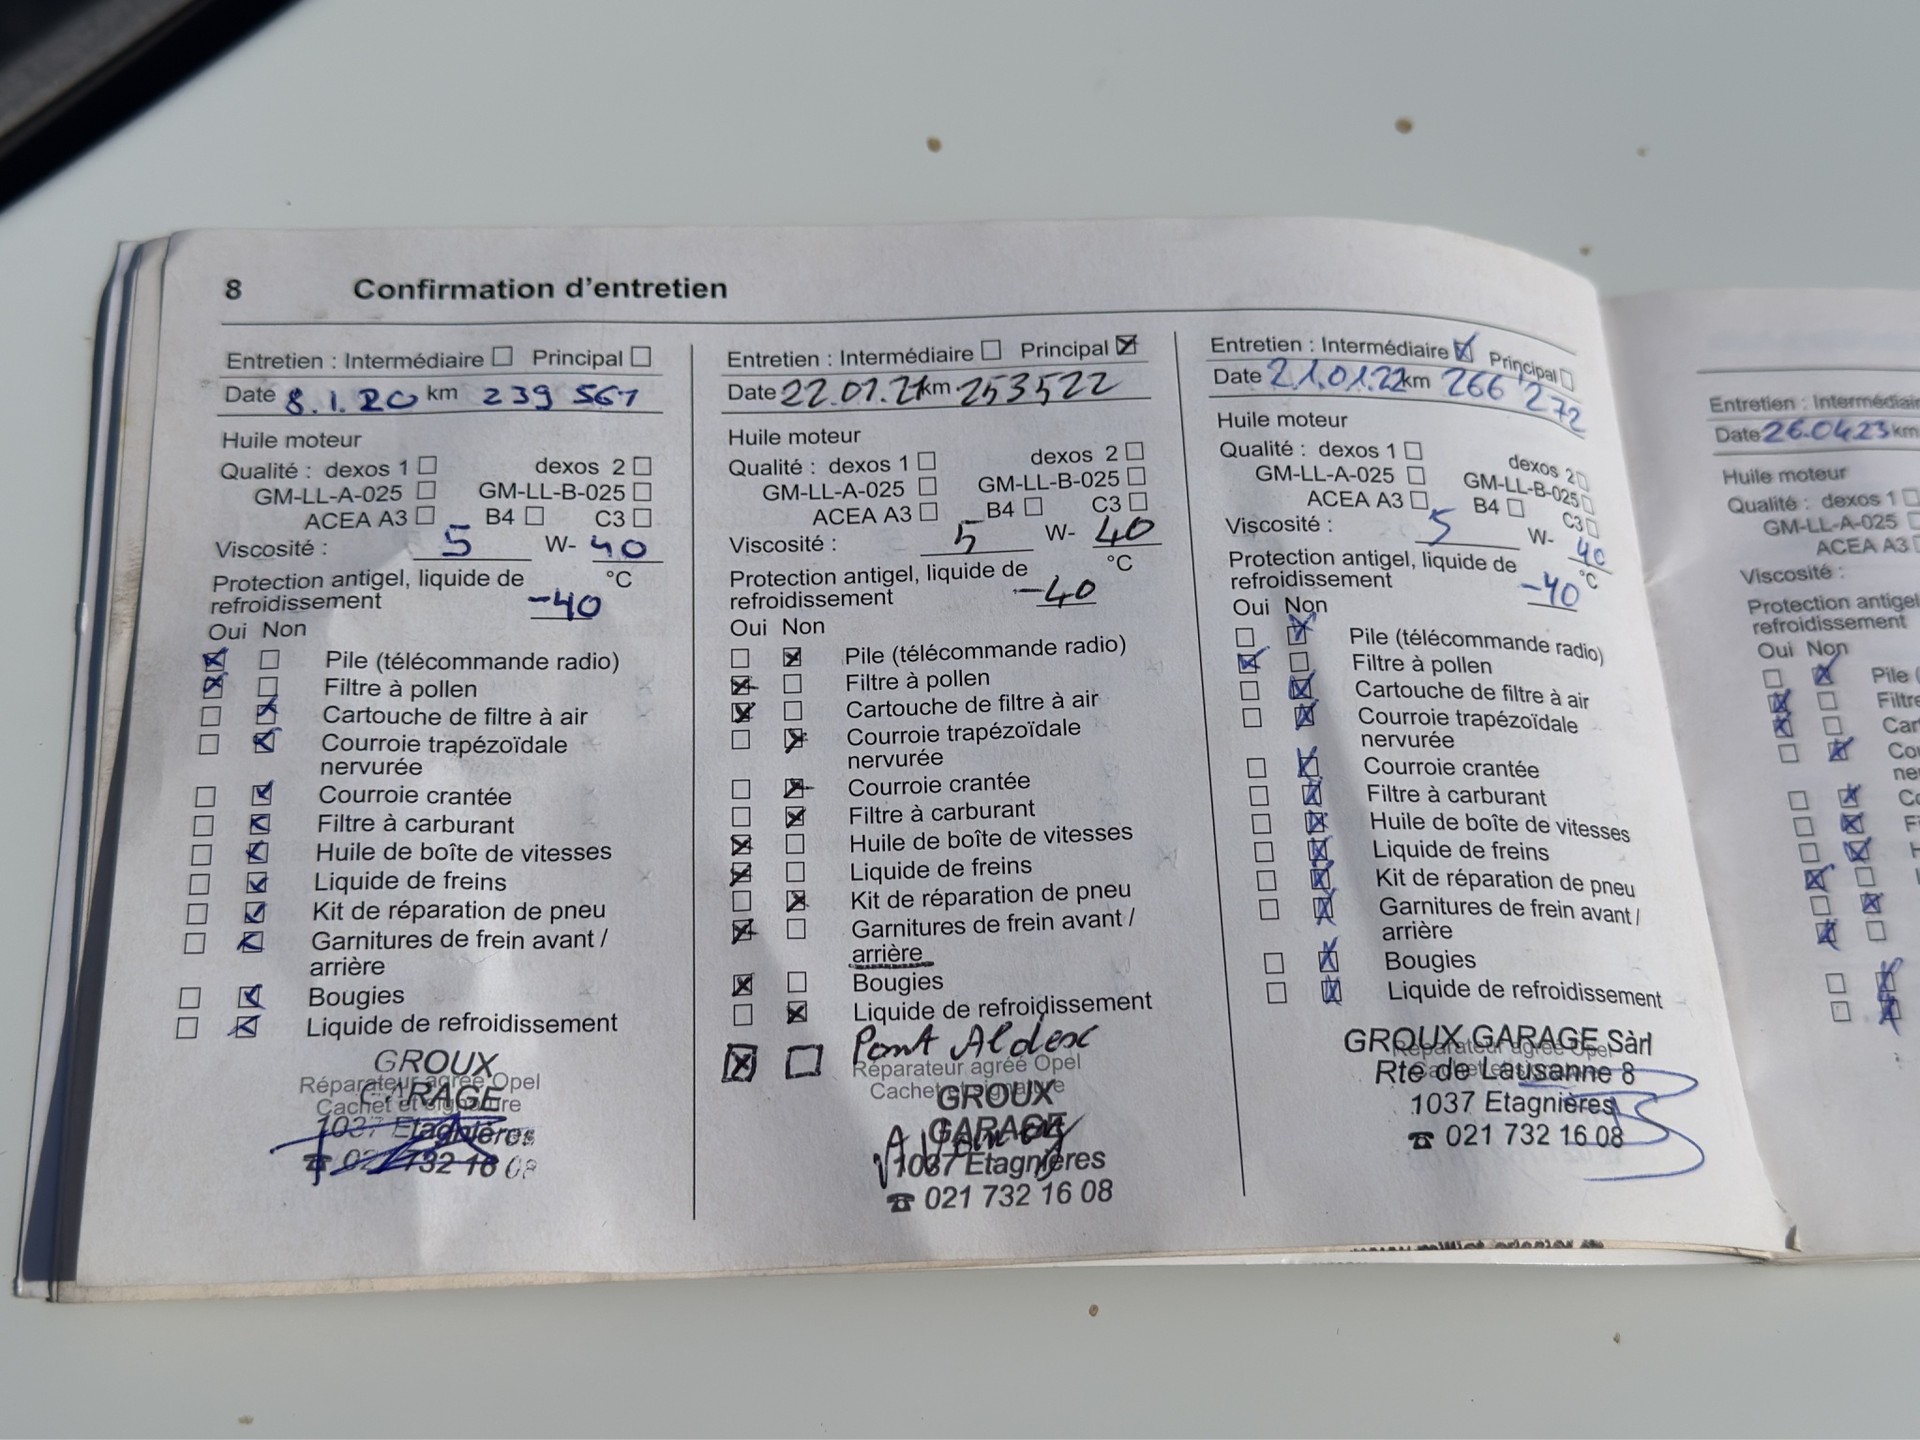 8 Confirmation d'entretien
Entretien : Intermédiaire Principal
Date 8.1.20 km 239 561
Huile moteur
Qualité : dexos 1 dexos 2
GM-LL-A-025 GM-LL-B-025
ACEA A3 B4 C3
Viscosité : 5 W- 40
Protection antigel, liquide de °C
refroidissement -40
Oui Non
Pile (télécommande radio)
Filtre à pollen
Cartouche de filtre à air
Courroie trapézoïdale
nervurée
Courroie crantée
Filtre à carburant
Huile de boîte de vitesses
Liquide de freins
Kit de réparation de pneu
Garnitures de frein avant /
arrière
Bougies
Liquide de refroidissement
GROUX
Réparateur agréé Opel
GARAGE
Cachet et signature
1037 Etagnières
021 732 16 08
Entretien : Intermédiaire Principal
Date 22.01.21 km 253522
Huile moteur
Qualité : dexos 1 dexos 2
GM-LL-A-025 GM-LL-B-025
ACEA A3 B4 C3
Viscosité : 5 W- 40
Protection antigel, liquide de °C
refroidissement -40
Oui Non
Pile (télécommande radio)
Filtre à pollen
Cartouche de filtre à air
Courroie trapézoïdale
nervurée
Courroie crantée
Filtre à carburant
Huile de boîte de vitesses
Liquide de freins
Kit de réparation de pneu
Garnitures de frein avant /
arrière
Bougies
Liquide de refroidissement
Pont Aldex
Réparateur agréé Opel
Cachet et signature
GROUX
GARAGE
1037 Etagnières
021 732 16 08
Entretien : Intermédiaire Principal
Date 21.01.22 km 266 272
Huile moteur
Qualité : dexos 1 dexos 2
GM-LL-A-025 GM-LL-B-025
ACEA A3 B4 C3
Viscosité : 5 W- 40
Protection antigel, liquide de °C
refroidissement -40
Oui Non
Pile (télécommande radio)
Filtre à pollen
Cartouche de filtre à air
Courroie trapézoïdale
nervurée
Courroie crantée
Filtre à carburant
Huile de boîte de vitesses
Liquide de freins
Kit de réparation de pneu
Garnitures de frein avant /
arrière
Bougies
Liquide de refroidissement
GROUX GARAGE Sàrl
Réparateur agréé Opel
Rte de Lausanne 8
1037 Etagnières
021 732 16 08
Entretien : Intermédiair
Date 26.04.23 km
Huile moteur
Qualité : dexos 1
GM-LL-A-025
ACEA A3
Viscosité :
Protection antigel
refroidissement
Oui Non
Pile (
Filtre
Car
Cou
ne
Co
F